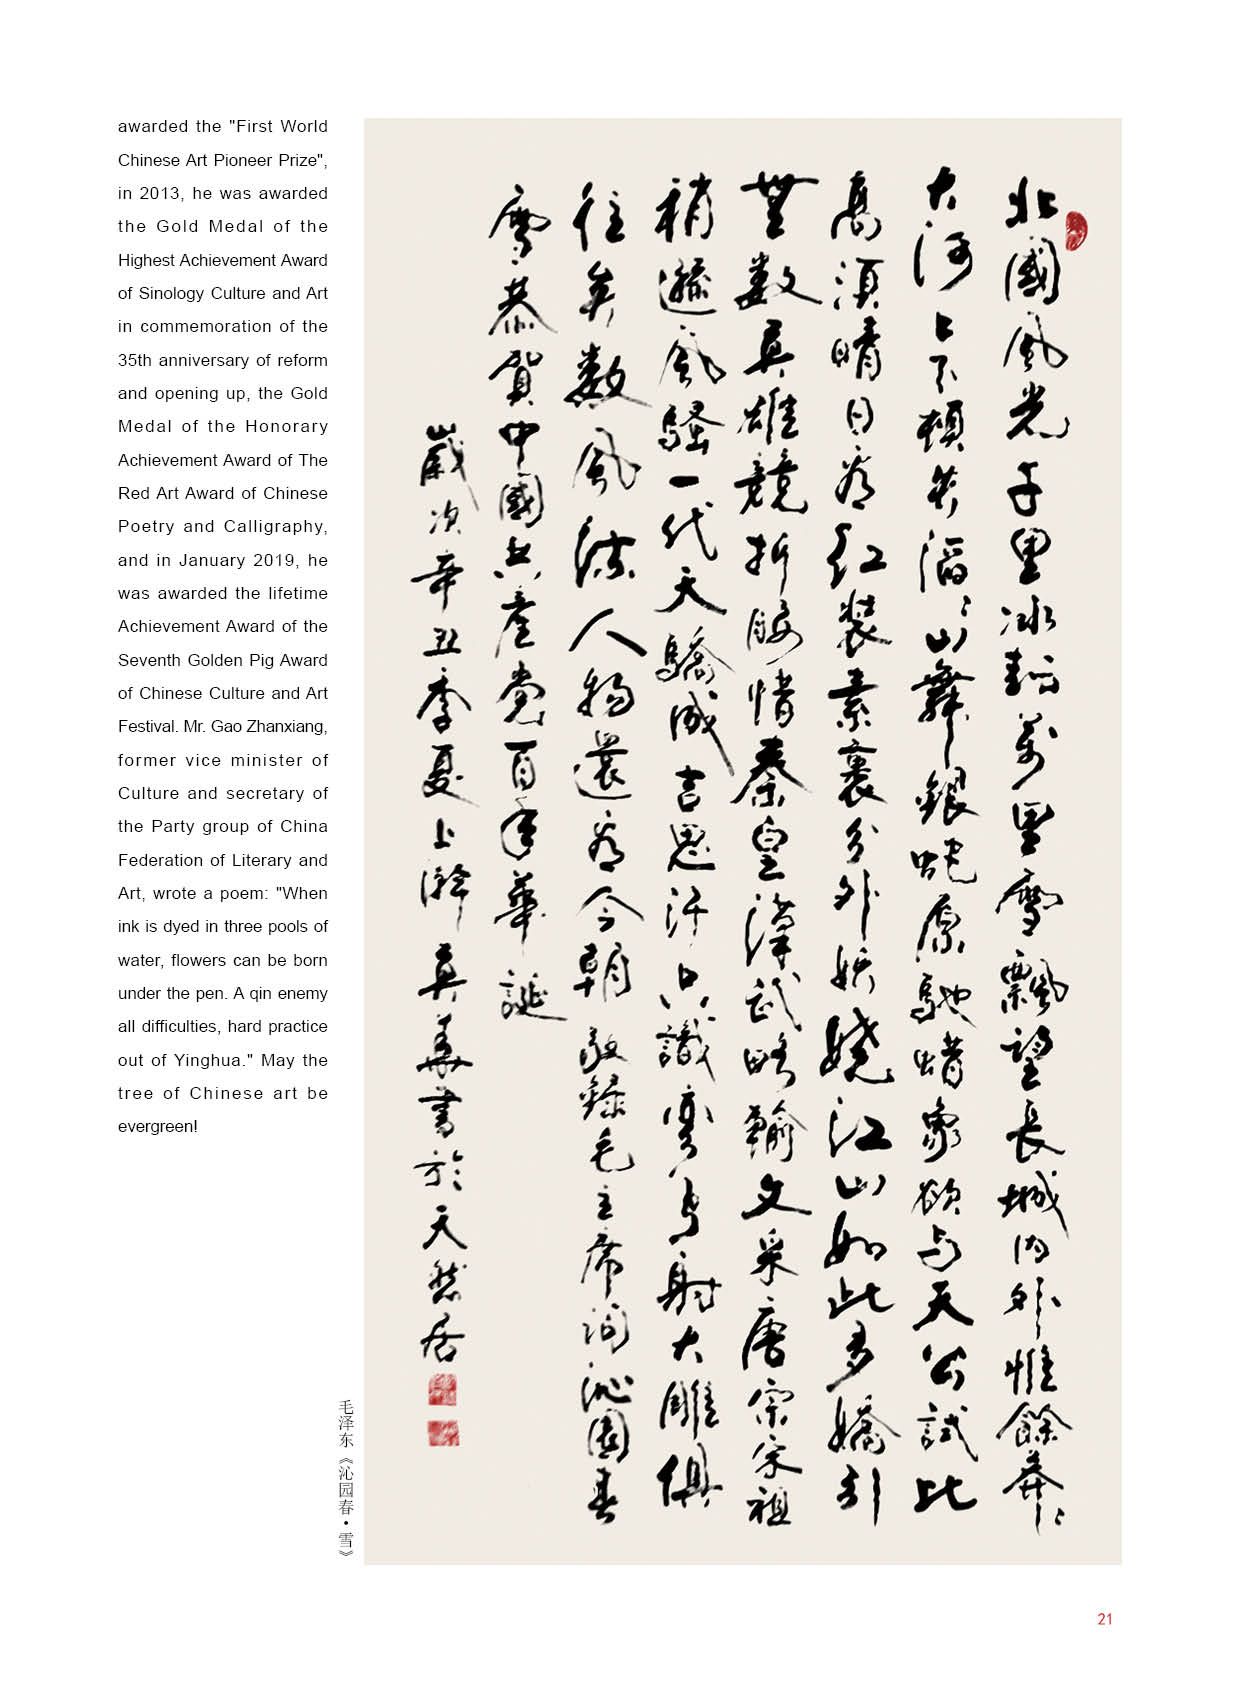 awarded the "First World
Chinese Art Pioneer Prize",
in 2013, he was awarded
the Gold Medal of the
Highest Achievement Award
of Sinology Culture and Art
in commemoration of the
35th anniversary of reform
and opening up, the Gold
Medal of the Honorary
Achievement Award of The
Red Art Award of Chinese
Poetry and Calligraphy,
and in January 2019, he
was awarded the lifetime
Achievement Award of the
Seventh Golden Pig Award
of Chinese Culture and Art
Festival. Mr. Gao Zhanxiang,
former vice minister of
Culture and secretary of
the Party group of China
Federation of Literary and
Art, wrote a poem: "When
ink is dyed in three pools of
water, flowers can be born
under the pen. A qin enemy
all difficulties, hard practice
out of Yinghua." May the
tree of Chinese art be
evergreen!
北國風光千里冰封萬里雪飄望長城內外惟餘莽々
大河上下頓失滔々山舞銀蛇原馳蜡象欲與天公試比
高須晴日看紅裝素裹分外妖嬈江山如此多嬌引
無數英雄競折腰惜秦皇漢武略輸文采唐宗宋祖
稍遜風騷一代天驕成吉思汗只識彎弓射大雕俱
往矣數風流人物還看今朝敬錄毛主席詞沁園春
雪恭賀中國共產黨百年華誕
歲次辛丑季夏上澣英華書於天然居
毛泽东《沁园春·雪》
21